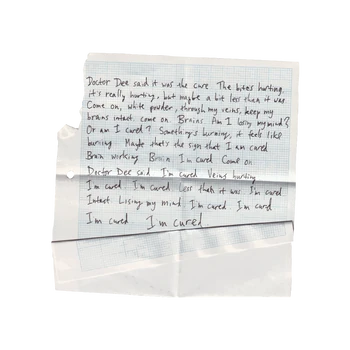 Doctor Dee said it was the cure The bites hurting.
it's really hurting, but maybe a bit less then it was
Come on, white powder, through my veins, keep my
brains intact come on Brains Am I losing my mind?
Or am I cured? Something's burning, it feels like
burning Maybe that's the sign that I am cured
Brain working Brain I'm cured Come on
Doctor Dee said I'm cured Veins burning
I'm cured I'm cured Less than it was I'm cured
Intact Losing my mind I'm cured I'm cured
I'm cured I'm cured